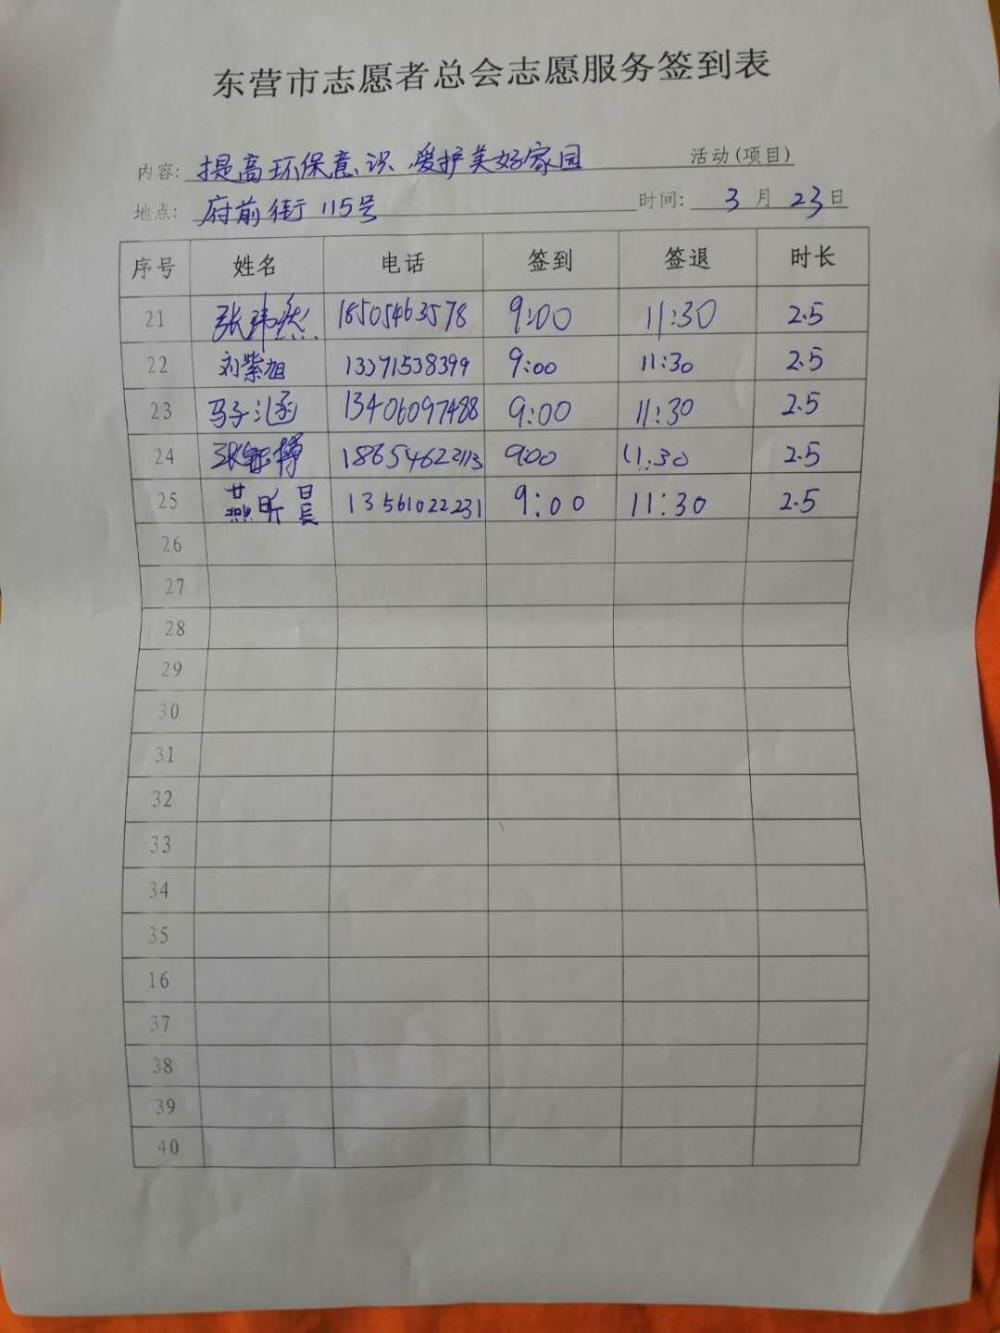 东营市志愿者总会志愿服务签到表
内容: 提高环保意识、爱护美好家园 活动(项目)
地点: 府前街115号 时间: 3月23日
序号 姓名 电话 签到 签退 时长
21 张玮然 18505463578 9:00 11:30 2.5
22 刘紫旭 13371538399 9:00 11:30 2.5
23 马子涵 13406097488 9:00 11:30 2.5
24 张博 18654622113 9:00 11:30 2.5
25 燕昕晨 13561022231 9:00 11:30 2.5
26
27
28
29
30
31
32
33
34
35
16
37
38
39
40